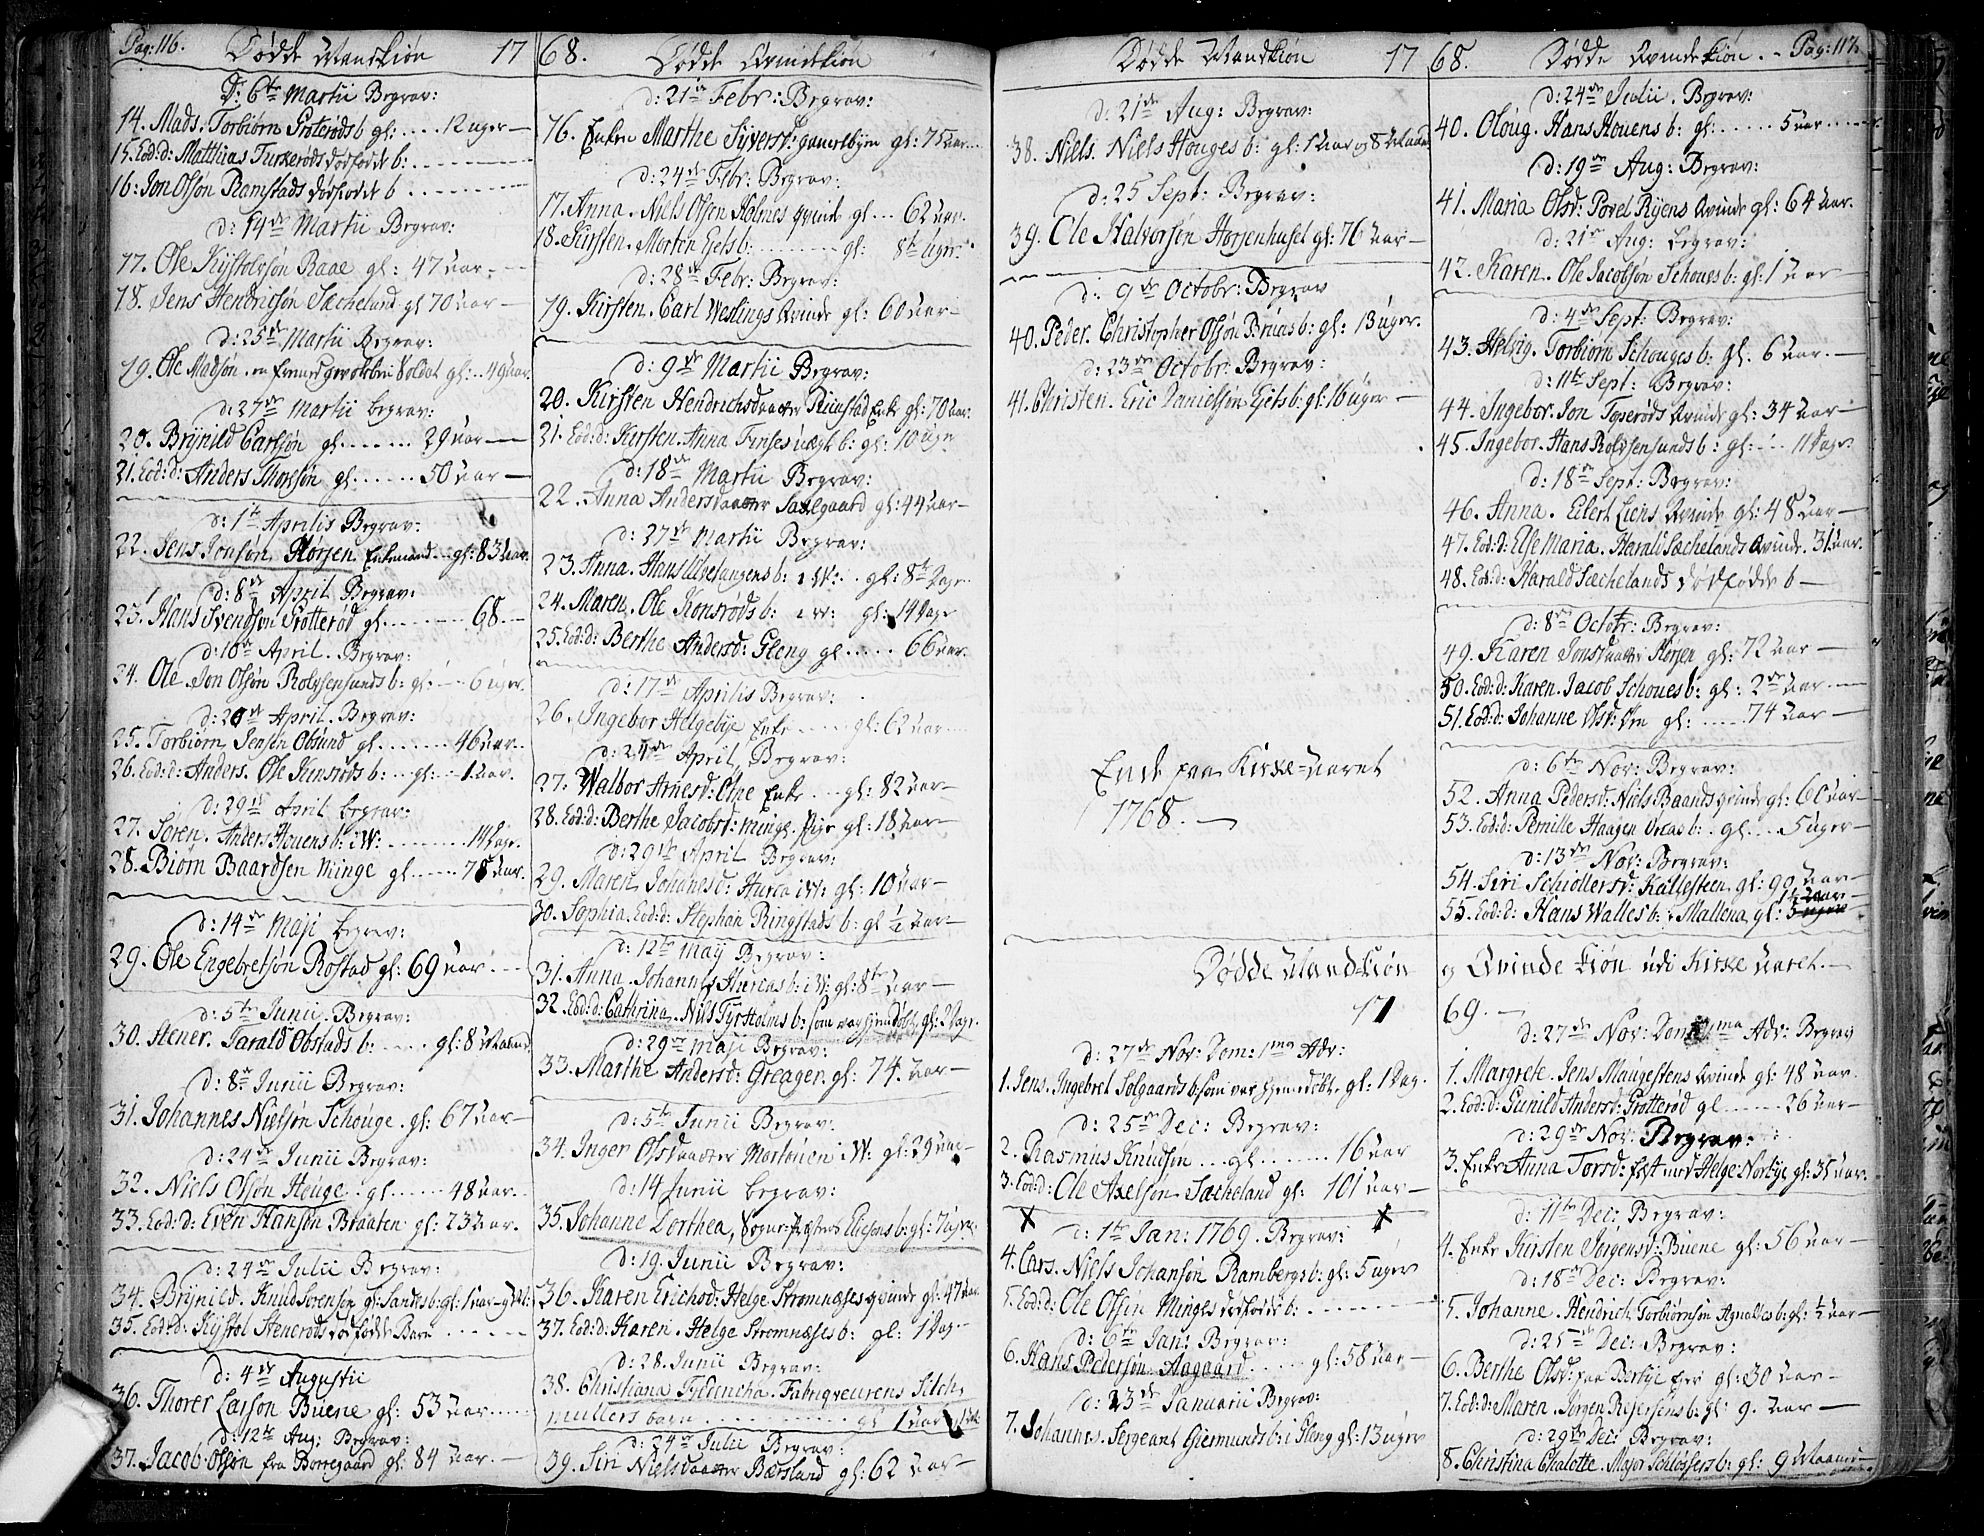 Pag: 116. Dødde Mandkiøn 17
D: 6te Martii Begrav:
14. Mads. Torbiørn Groterøds b gl: .... 12 uger —
15. Eod: d: Matthias Turkerøds dødfødde b:
16: Jon Olsøn Ramstads dødfødde b
d: 14de Martii Begrav:
17. Ole Kystolvsøn Raae gl: 47 aar.
18. Jens Hendricsøn Sæcheland gl 70 aar —
d: 25de Martii Begrav:
19. Ole Madsøn. en Soldat gl: .. 49 aar.
d: 27de Martii begrav:
20. Brynild Carlsøn gl ...... 29 aar —
21. Eod: d: Anders Thorsøn gl ...... 50 aar —
d: 1te Aprilis Begrav:
22. Jens Jonsøn Skørjen Enkemand .. gl: 83 aar.
d: 8de April Begrav:
23. Hans Svendsøn Grotterød gl ....... 68. —
d: 10de April. Begrav:
24. Ole. Jon Olsøn Rolvsensunds b: gl: — 6 uger.
d: 20de April. Begrav:
25. Torbiørn Jensøn Obsund gl ....... 46 aar..
26. Eod: d: Anders. Ole Kinsrøds b: .. gl: .. 1 aar.
d: 29de April begrav:
27. Søren. Anders Houens b: i W: ...... 14 dage.
28. Biørn Baardsen Minge gl ..... 78 aar.
d: 14de Maji begrav:
29. Ole Engebretsøn Rostad gl: 69 aar ...
d: 5te Junii. Begrav:
30. Stener. Tarald Obstads b: .... gl: 8 Maaned.
d: 8de Junii Begrav:
31. Johannes Nielsøn Schouge. gl: 67 aar —
d: 24de Junii Begrav:
32. Niels Olsøn Houge. gl ...... 48 aar..
33. Eod: d: Even Hansøn Braaten gl: 23 aar.
d: 24de Julii Begrav:
34. Brynild. Knud Sørensøn gl: Sandes b: gl: 1 aar
35. Eod: d: Kystol Stenerøds dødfødde Barn
d: 4de Augustii
36. Thorer Larsøn Buene gl: 53 aar ....
d: 12te Aug: Begrav:
37. Jacob Olsøn fra Borregaard gl: 84 aar. —
68. Dødde Qvindekiøn
d: 21de Febr: Begrav:
16. Enken Marthe Syversd: gamelbyen gl: 75 aar...
d: 24de Febr: Begrav:
17. Anna. Niels Olsen Holmes qvinde gl ... 62 aar.
18. Kirsten. Morten Gets b: ........ gl: 8te Uger.
d: 28de Febr: Begrav:
19. Kirsten. Carl Westings Qvinde gl: 60 aar —
d: 9de Martii Begrav:
20. Kirsten Hendrichsdaatter Rimstad Enke gl: 70 aar.
21. Eod: d: Kirsten. Anna b: gl: 10 uger
d: 18de Martii Begrav:
22. Anna Andersdaatter Saxlgaard gl: 44 aar —
d: 27de Martii Begrav:
23. Anna. Hans Ulvetangens b: i W: .. gl: 8te Dage.
24. Maren. Ole Konsrøds b: i W: gl: 14 Dage
25. Eod: d: Berthe Andersd: Gleng gl ..... 66 aar.
d: 17de Aprilis Begrav:
26. Ingebor Helgebye Enke ..... gl: 62 aar ....
d: 24de April Begrav:
27. Walbor Arnesd: Olpe Enke ... gl: 82 aar —
28. Eod: d: Berthe Jacobsd: minge. Pige gl: 18 aar —
d: 29de April Begrav:
29. Maren Johanesd: Hurca i W: gl: 10 aar —
30. Sophia. Eod: d: Stephan Ringstads b: gl ½ aar —
d: 12te Maij Begrav:
31. Anna. Johannes Hurcas b: i W: gl: 8te aar —
32. Eod: d: Cathrina. Niels Tyrholms b: som var hjemdøbt gl: 2 Dage.
d: 29de Maji Begrav:
33. Marthe Andersd: Greager. gl: 74. aar —
d: 5te Junii Begrav:
34. Inger Olsdaatter Mortouen i W: gl: 29 aar —
d: 14 Junii begrav:
35. Johanne Dorthea, Sogne-Præstens Eliesons b: gl: 7 uger.
d: 19. Junii Begrav:
36. Karen Erichsd: Helge Strømnæses qvinde gl: 47 aar
37. Eod: d: Karen. Helge Strømnæses b: gl: 1 Dag —
d: 28. Junii Begrav:
38. Christiana Fabriqveurens Silch-
mullers barn ........... gl 1 aar
d: 24de Julii Begrav:
39. Siri Nielsdaatter Børsland gl: 62 aar —
Dødde Mandkiøn 17
d: 21de Aug: Begrav:
38. Niels. Niels Houges b: gl: 1 aar og 8 Maaned
d: 25 Sept: Begrav:
39. Ole Halvorsøn Horsenhusel gl: 76 aar —
d: 9de Octobr: Begrav
40. Peder. Christopher Olsøn Bruas b: gl: 13 uger.
d: 23de Octobr: Begrav:
41. Christen. Eric Danielsøn Gets b: gl: 16 uger —
Ende paa Kirke-Aaret
1768. —
Dødde Mandkiøn
17
d: 27de Nov: Dom: 1ma Adv:
1. Jens. Ingebret Solgaards b: som var hjemdøbt. gl: 1 Dag.
d: 25de Dec: Begrav:
2. Rasmus Knudsøn ... gl ...... 16 aar
3. Eod: d: Ole Axelsøn Sæcheland gl: 101 aar —
d: 1te Jan: 1769. Begrav:
4. Lars. Niels Johansøn Rambergs b: gl: 5 uger
5. Eod: d: Ole Olsøn Minges dødfødde b:
d: 6te Jan: Begrav:
6. Hans Pedersøn Aagaard ..... gl: 58 aar —
d: 23de Januarii Begrav:
7. Johannes. Sergeant Giermunds b: i Gleng gl: 13 uger
68. Dødde Qvindekiøn. - Pag: 117.
d: 24de Julii. Begrav:
40. Oloug. Hans Houens b: gl: ..... 5 aar
d: 19de Aug: Begrav:
41. Maria Olsd: Povel Ryens Qvinde gl: 64 aar.
d: 21de Aug: begrav:
42. Karen. Ole Jacobsøn Schoues b: gl: 1 aar —
d: 4de Sept: Begrav:
43. Helvig. Torbiørn Schouges b: gl. 6 aar. —
d: 11te Sept: Begrav:
44. Ingebor. Jon Toserøds Qvinde gl: 34 aar —
45. Ingebor. Hans Rolvsensunds b: gl: .. 11 Dage:
d: 18de Sept: Begrav:
46. Anna. Eilert Liens Qvinde gl: 48 aar —
47. Eod: d: Else Maria. Harald Sæchelands Qvinde. 31 aar.
48. Eod: d: Harald Sæchelands dødfødde b —
d: 8de Octobr: Begrav:
49. Karen Jonsdaatter Skørjen gl: 72 aar —
50. Eod: d: Karen. Jacob Schoues b: gl: 2de aar
51. Eod: d: Johanne Olsd: Øre gl: ..... 74 aar —
d: 6te Nov: Begrav:
52. Anna Pedersd: Niels Baands qvinde gl: 60 aar —
53. Eod: d: Pernille Haagen Orcas b: . gl ... 5 uger —
d: 13de Nov: Begrav:
54. Siri Schiollersd: Kallesteen. gl: 90 aar —
55. Eod: d: Hans Walles b: Mallena gl: 5 uger
og Qvinde kiøn udi Kirke Aaret. —
69. —
d: 27de Nov: Dom 1ma Adv: Begrav
1. Margrete. Jens Maugestens Qvinde gl: 48 aar.
2. Eod: d: Gunild Andersd: Grotterød gl ...... 26 aar —
d: 29de Nov: Begrav:
3. Enke Anna Torsd: fæst med Helge Norbye gl: 35 aar.
d: 11te Dec: Begrav:
4. Enke Kirsten Jørgensd: Buene gl: 56 aar —
d: 18de Dec: Begrav:
5. Johanne. Hendrich Torbiørnsøn Agnalles b: gl: ½ aar —
d: 25de Dec: Begrav:
6. Berthe Olsd: fra Berbye gl: 30 aar —
7. Eod: d: Maren. Jørgen Rejersens b: gl: 9. aar —
d: 29de Dec: Begrav:
8. Christina Chalotte. Major Schløssers b: gl: 9 Maaned